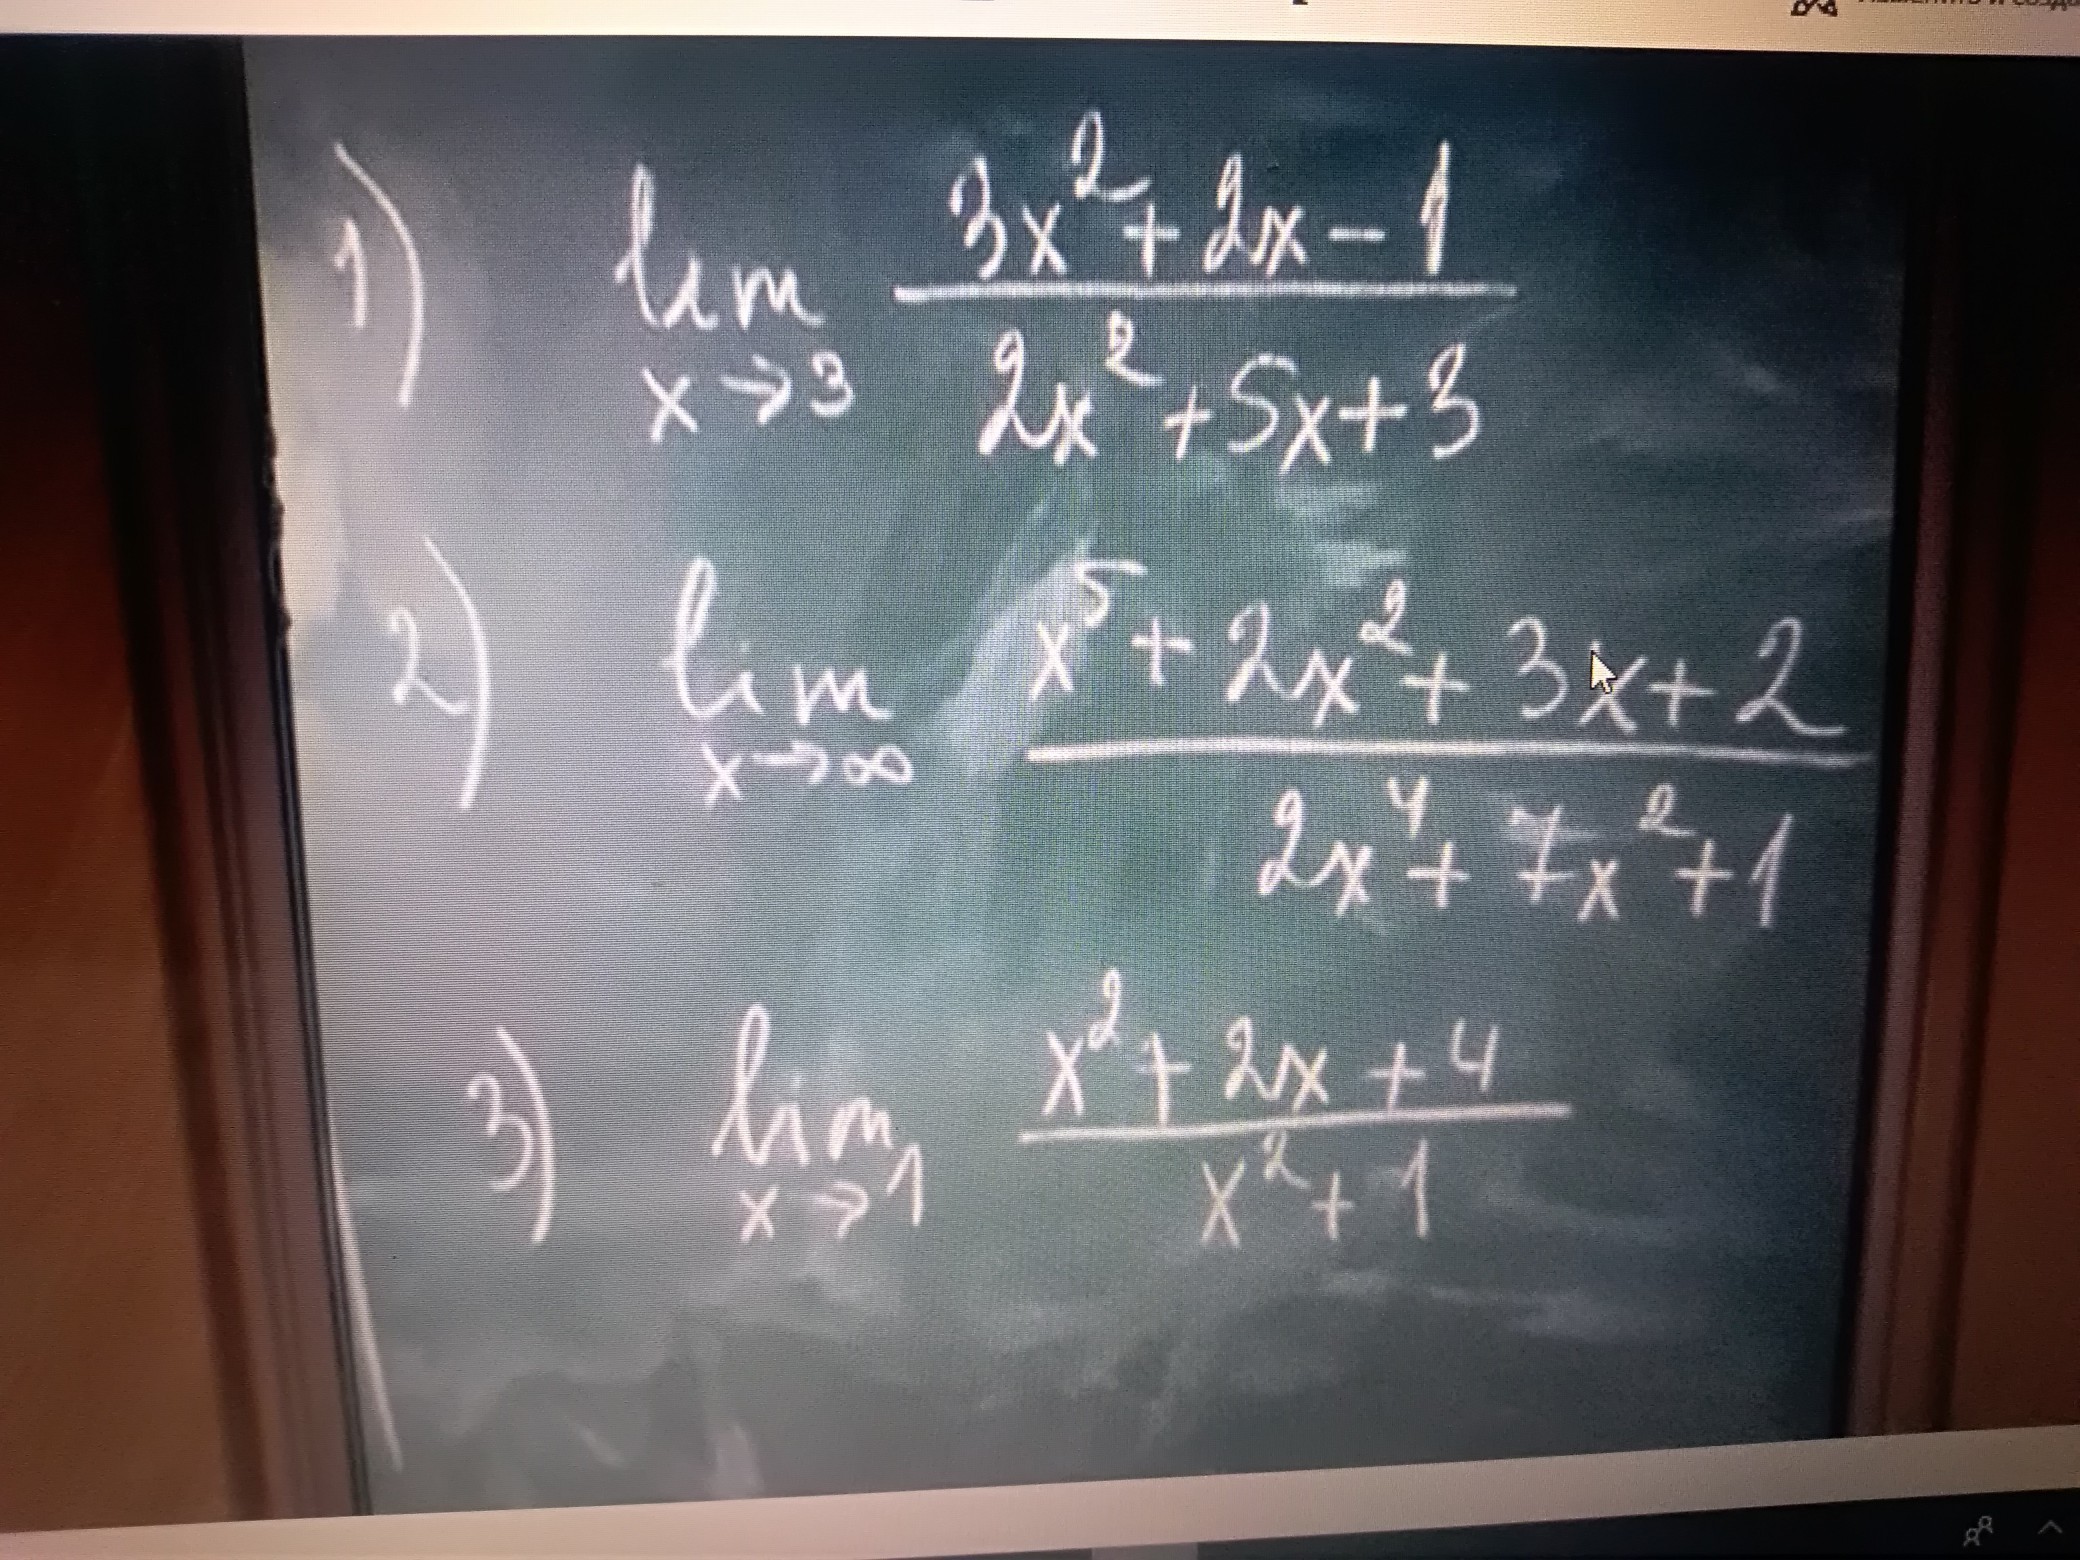 1) lim x→3 (3x² + 2x - 1) / (2x² + 5x + 3)
2) lim x→∞ (x⁵ + 2x² + 3x + 2) / (2x⁴ + 7x² + 1)
3) lim x→1 (x² + 2x + 4) / (x² + 1)